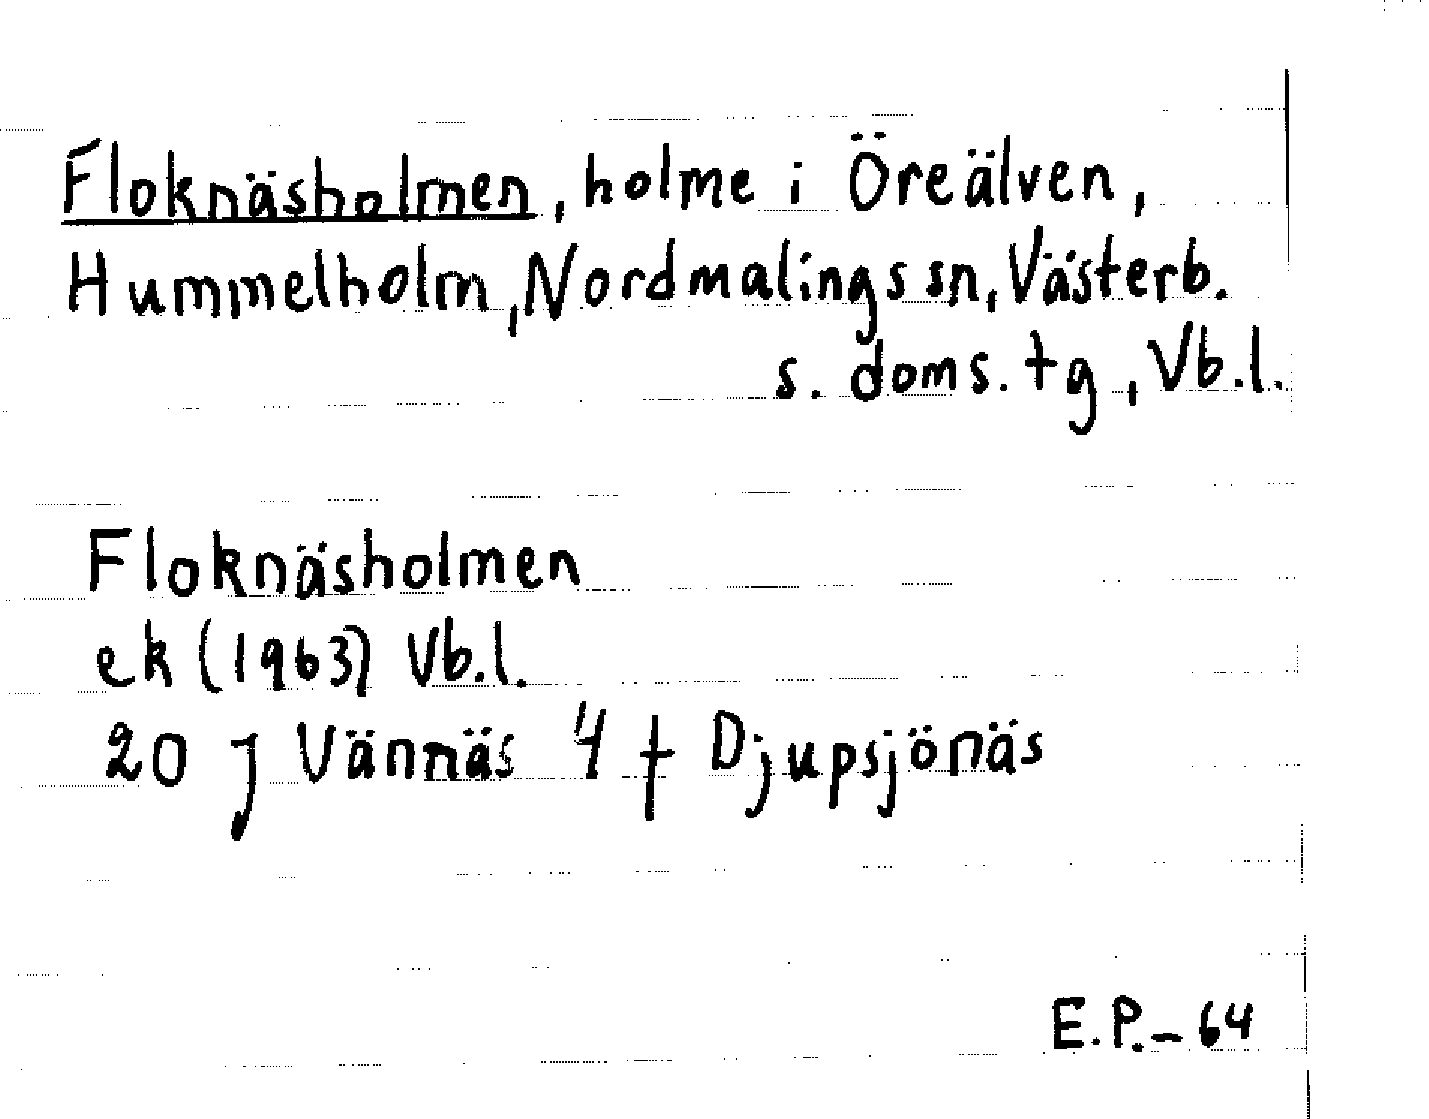 Floknäsholmen, holme i Öreälven,
Hummelholm, Nordmalings sn, Västerb.
s. doms. tg, Vb.l.
Floknäsholmen
ek (1963) Vb.l.
20 J Vännäs 4 f Djupsjönäs
E.P.-64